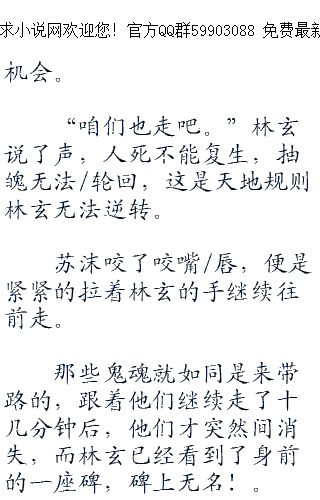 求小说网欢迎您！官方QQ群59903088 免费最新
机会。
“咱们也走吧。”林玄
说了声，人死不能复生，抽
魄无法/轮回，这是天地规则
林玄无法逆转。
苏沫咬了咬嘴/唇，便是
紧紧的拉着林玄的手继续往
前走。
那些鬼魂就如同是来带
路的，跟着他们继续走了十
几分钟后，他们才突然间消
失，而林玄已经看到了身前
的一座碑，碑上无名！。